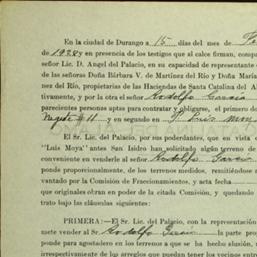 En la ciudad de Durango a 15 días del mes de Fe
de 1928 en presencia de los testigos que al calce firman, compa
señor Lic. D. Angel del Palacio, en su capacidad de representante
de las señoras Doña Bárbara V. de Martínez del Río y Doña María
nez del Río, propietarias de las Haciendas de Santa Catalina del A
tivamente, y por la otra el señor Rodolfo García
parecientes personas aptas para contratar y obligarse, el primero de
Negrete # 11 y en segundo en P. Luis Moy
El Sr. Lic. del Palacio, por sus poderdantes, que en vista
"Luis Moya" antes San Isidro han solicitado algún terreno de
conveniente en venderle al señor Rodolfo García
ponde proporcionalmente, de los terrenos medidos, remitiéndose a
vantado por la Comisión de Fraccionamientos, y acta fecha
que originales obran en poder de la citada Comisión, y quedando
trato bajo las cláusulas siguientes:
PRIMERA:—El Sr. Lic. del Palacio, con la representación
mete vender al Sr. Rodolfo García la parte
ponde para agostadero en los terrenos a que se ha hecho alusión,
irrespectivamente de los arreglos que puedan tener los vecinos entre